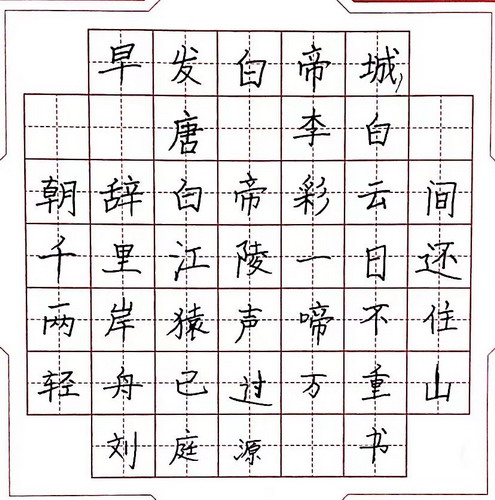 早发白帝城
唐 李白
朝辞白帝彩云间
千里江陵一日还
两岸猿声啼不住
轻舟已过万重山
刘庭源 书